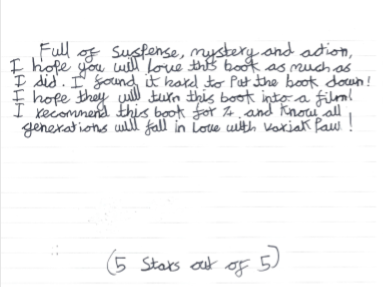 Full of Suspense, mystery and action,
I hope you will love this book as much as
I did. I found it hard to Put the book down!
I hope they will turn this book into a film!
I recommend this book for 7+ and know all
generations will fall in Love with Varjak Paw!
(5 Stars out of 5)